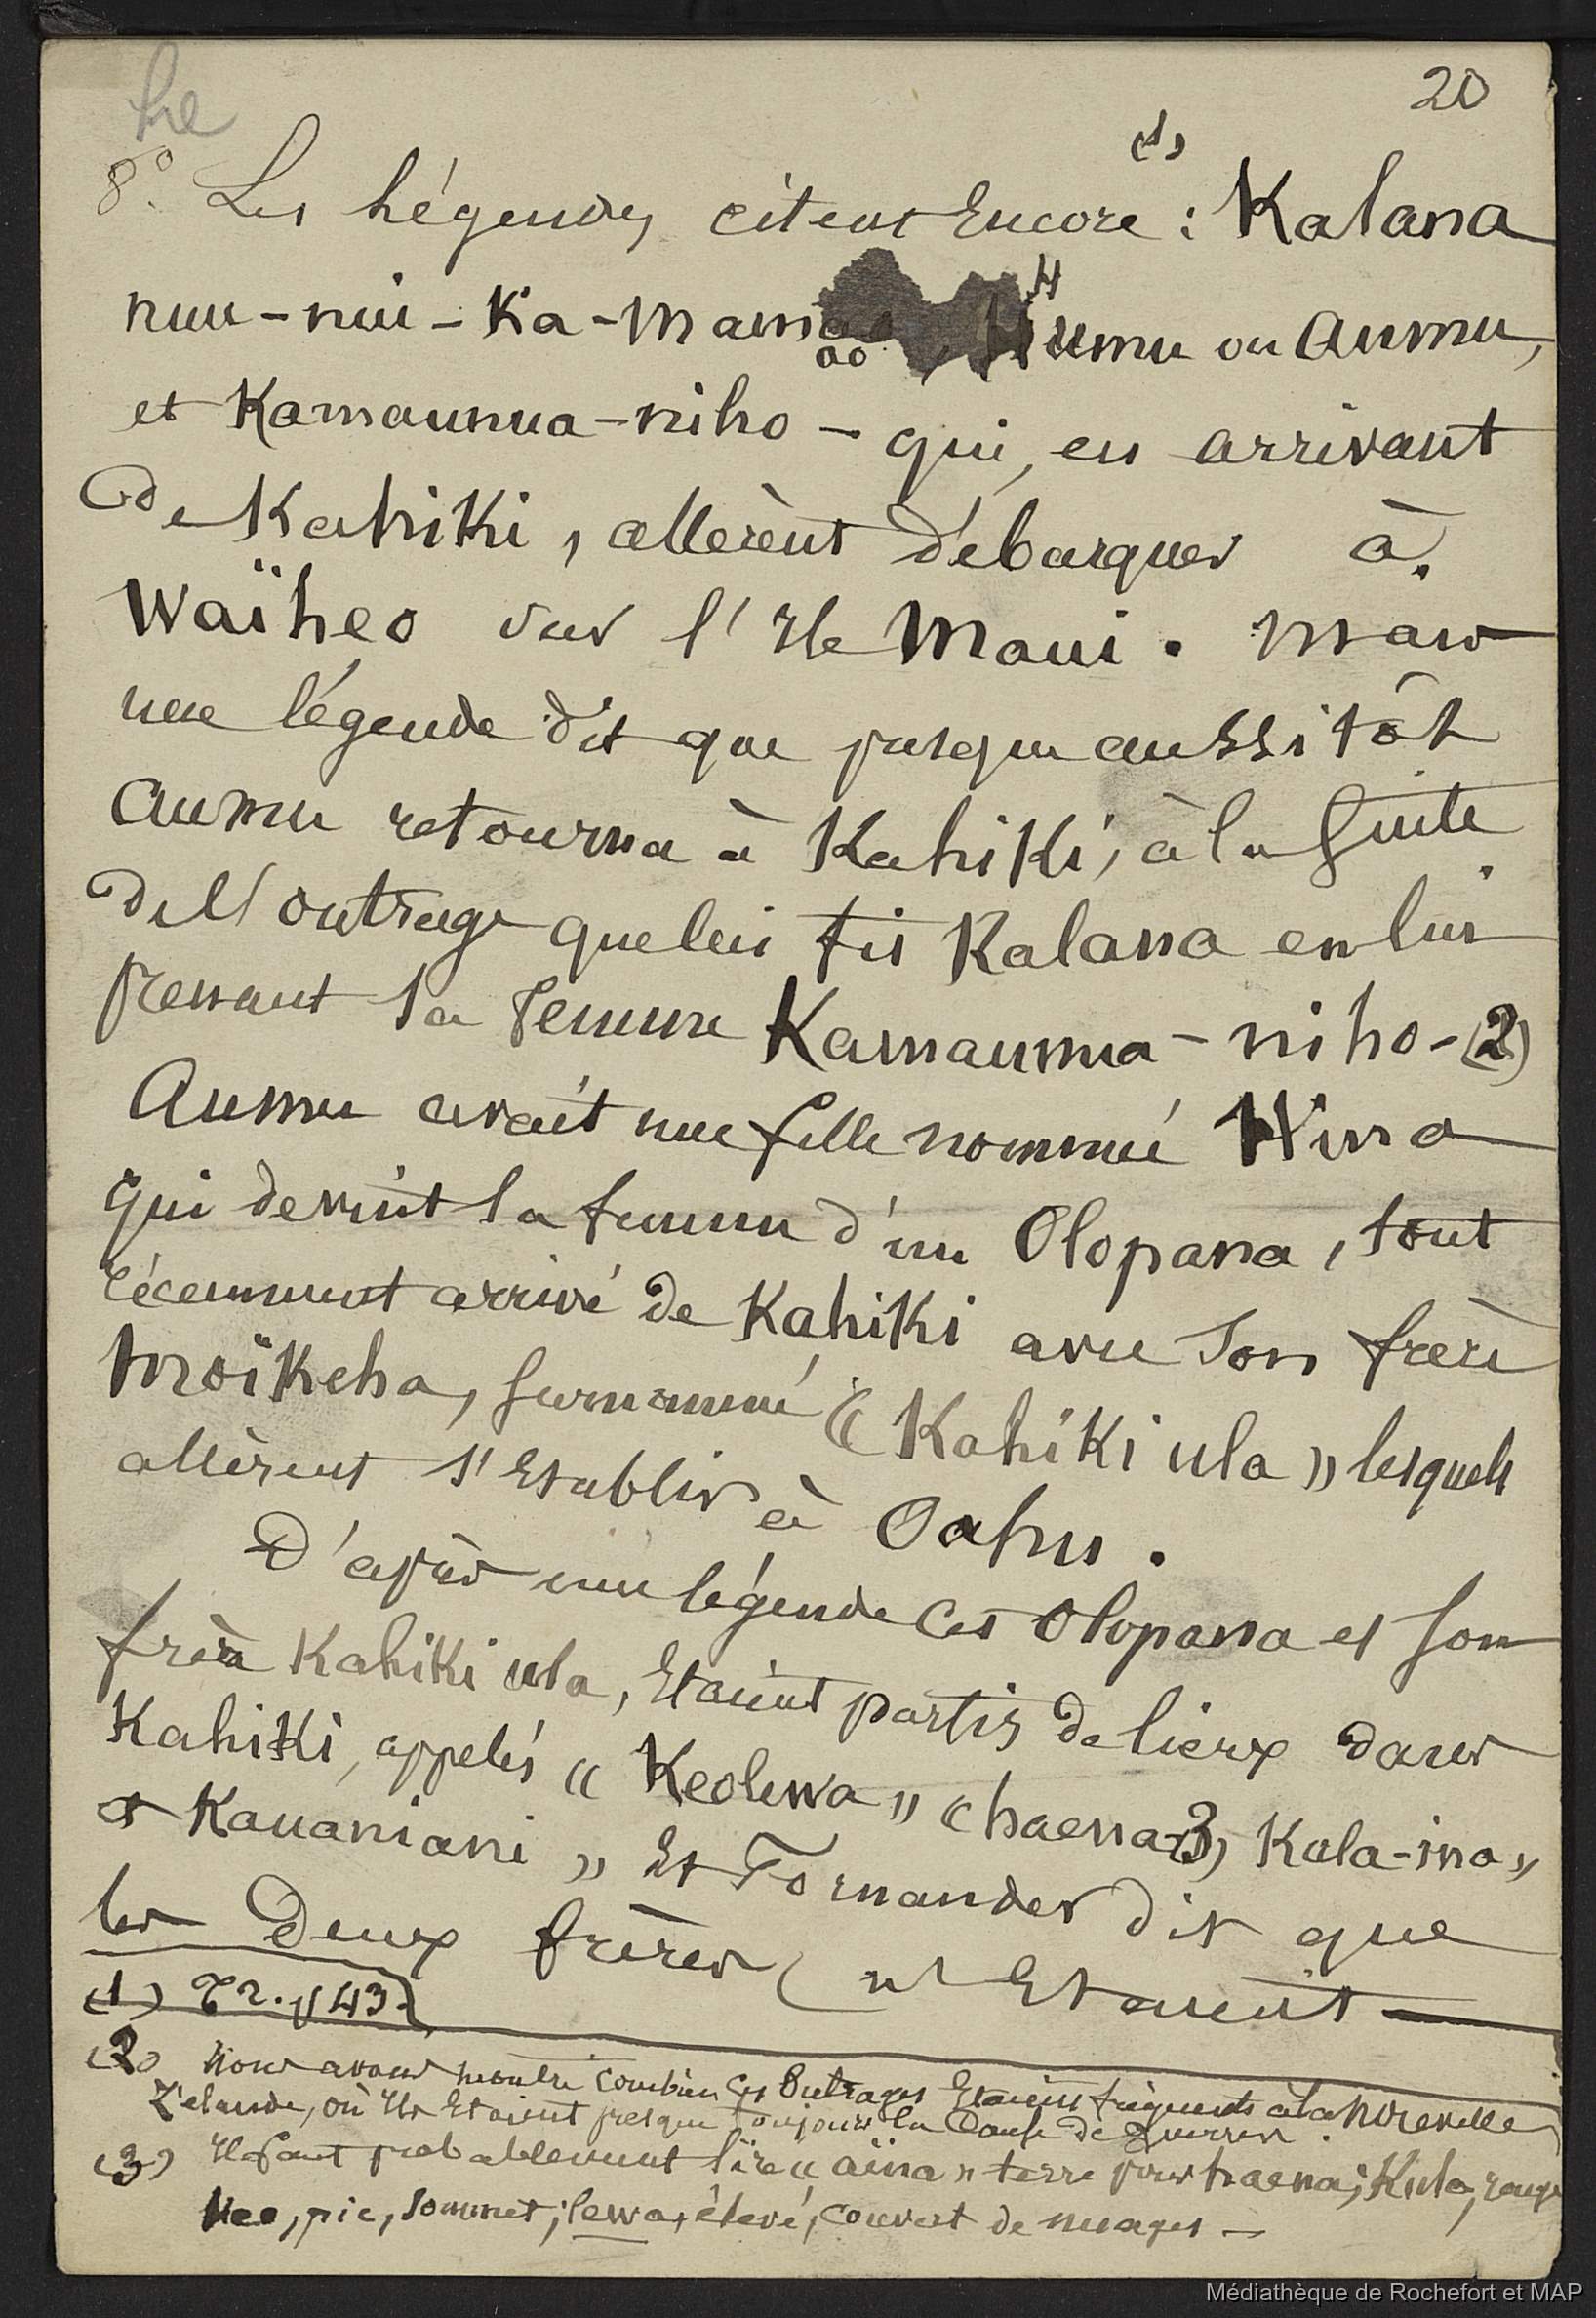 he
20
8º. Les légendes citent Encore (1) : Kalana
nuu-nui-Ka-Mamao, Humu ou Aumu,
et Kamaunua-niho - qui, en arrivant
de Kahiki, allèrent débarquer à
Waïheo sur l'Ile Maui. Mais
une légende dit que presque aussitôt
Aumu retourna à Kahiki, à la suite
de l'outrage que lui fit Kalana en lui
prenant sa femme Kamaunua-niho-(2)
Aumu avait une fille nommée Hina
qui devint la femme d'un Olopana, tout
récemment arrivé de Kahiki avec son frère
Moïkeha, surnommé « Kahiki ula » lesquels
allèrent s'Etablir à Oahu.
D'après une légende ces Olopana et son
frère Kahiki ula, Etaient partis de lieux dans
Kahiki, appelés « Keolewa » « haena (3) Kula-ina »
et Kauaniani » Et Fornander dit que
les Deux frères n'Etaient
(1) T2. p 43.
(2) Nous avons montré combien ces Outrages Etaient fréquents à la Nouvelle
Zélande, où Ils Etaient presque toujours la Cause de Guerres.
(3) Il faut probablement lire « aïna » terre pour haena; Kula, rouge
Keo, pic, sommet; lewa, élevé, couvert de nuages -
Médiathèque de Rochefort et MAP